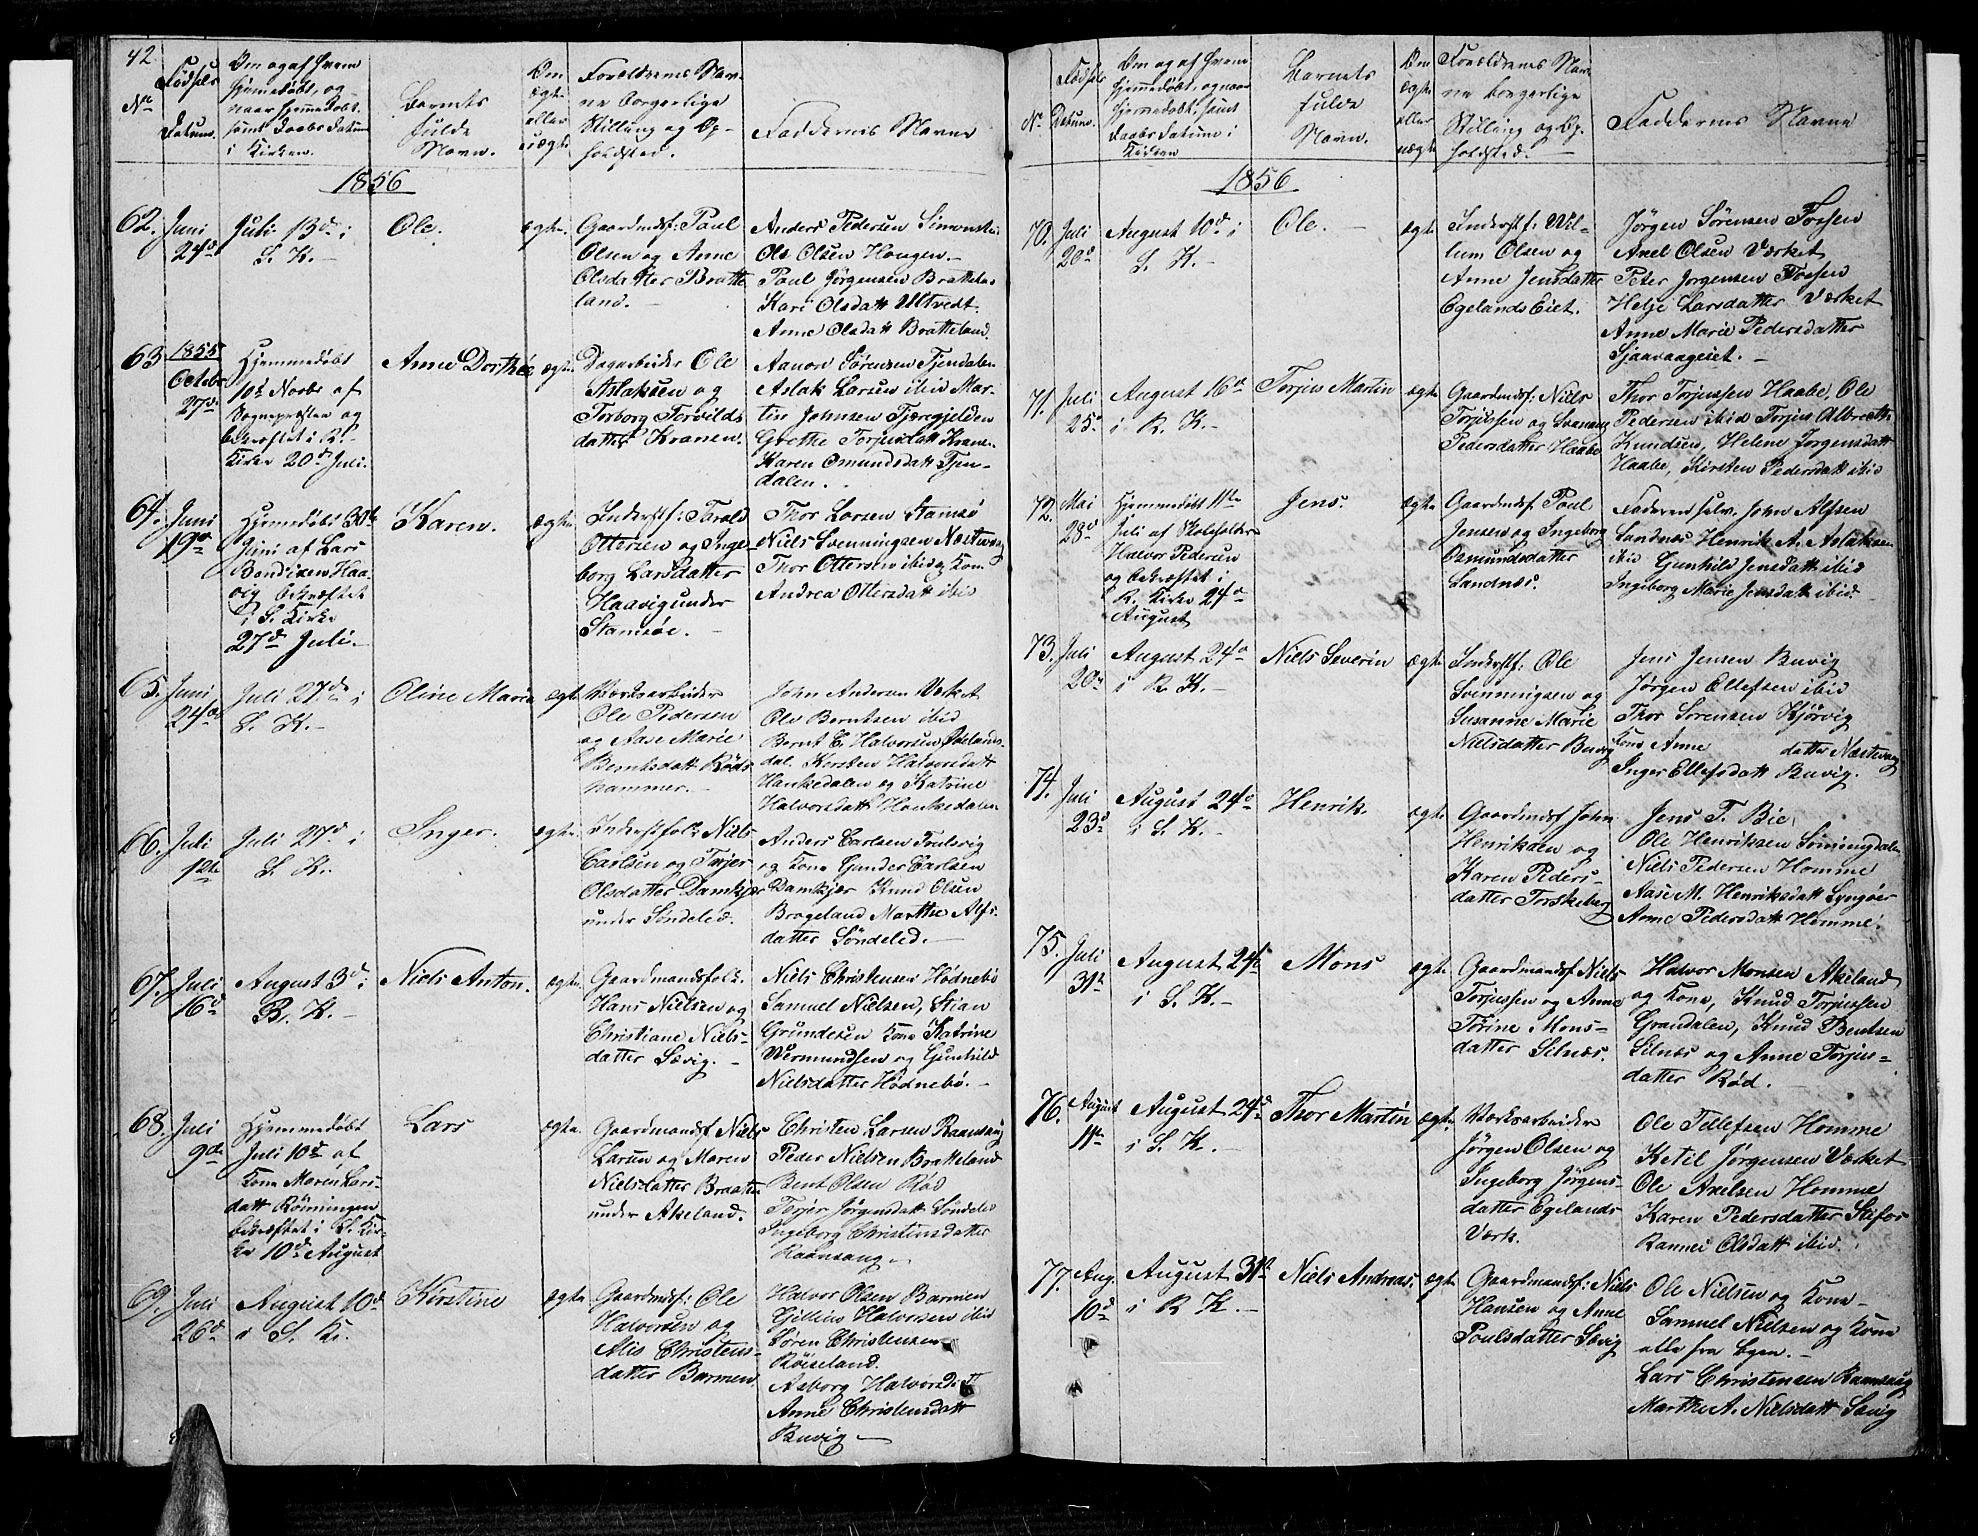 42
No
Fødsels
Datum.
Om og af hvem
hjemmedøbt, og
naar hjemmedøbt
samt Daabs Datum
i Kirken.
Barnets
fulde
Navn.
Om
ægte
eller
uægte
Forældrenes Nav-
ne borgerlige
Stilling og Op-
holdsted.
Faddernes Navne
1856
62. Juni
24de
Juli 13de i
S. K. –
Ole.
ægte.
Gaardmdsf: Paul
Olsen og Anne
Olsdatter Bratte
land. –
Anders Pedersen
Ole Olsen Haugen
Paul Jørgensen
Kari Olsdatt Ultvedt
Anne Olsdatt Bratteland.
63 1855
Octobr
27de
Hjemmedøbt
10de Novbr af
Sognepræsten og
bekræftet i R.
Kirke 20de Juli.
Anne Dorthea
ægte.
Dagarbeider Ole
Aslaksen og
Torborg Torvilds
datter Kranen.
Aanon Sørensen
Aslak Larsen ibid Mar-
tin Johnsen
Grethe Torjusdatt
Karen Omundsdatt Tjen-
dalen.
64. Juni
19de
Hjemmedøbt 30te
Juni af Lars
Bendixen Haa-
vig bekræftet
i S. Kirke
27de Juli. –
Karen.
ægte
Inderstf: Tarald
Ottersen og Inge-
borg Larsdatter
Haavig under
Stamsøe. –
Thor Larsen Stamsø
Niels Svenningsen Næstvog
Thor Ottersen ibid og Kone
Andrea Ottersdatt ibid
65. Juni
24de
Juli 27de i
S. K. –
Oline Marie
ægte
Værksarbeider
Ole Pedersen
og Aase Marie
Berntsdatt Røds
hammer. –
John Andersen Værket
Ole Berntsen ibid
Bernt E. Halvorsen
dal. Kirsten Halvorsdatt
Hankedalen og Katrine
Halvorsdatt Hankedalen
66. Juli
12te
Juli 27de i
S. K.
Inger.
ægte.
Inderstfolk Niels
Carlsen og Terjer
Olsdatter Damkjer
under Søndeled.
Anders Carlsen
og Kone Gunder Carlsen
Damkjer Knud Olsen
Brageland Marthe Alfs-
datter Søndeled. –
67. Juli
16de
August 3de i
R. K. –
Niels Anton.
ægte.
Gaardmandsfolk.
Hans Nielsen og
Christiane Niels-
datter Sævig. –
Niels Christensen Hødnebø
Samuel Nielsen, Stian
Grundesen Kone Katrine
Wermundsen og Gunhild
Nielsdatter Hødnebø. –
68. Juli
9de
Hjemmedøbt
Juli 10de af
Kone Maren Lars-
datt Rønningen
bekræftet i S. Kir-
ke 10de August
Lars
ægte
Gaardmandsf. Niels
Larsen og Maren
Nielsdatter Braaten
under Akeland.
Christen Larsen Ramsaug
Peder Nielsen Bratteland
Bent Olsen Rød
Terjer Jørgensdatt Søndeled
Ingeborg Christensdatter
Raamsaug. –
69. Juli
26de
August 10de
i S. K.
Kirstine
ægte
Gaardmdsf: Ole
Halvorsen og
Alis Christens-
datter Barmen.
Halvor Olsen Barmen
Halvorsen ibid
Søren Christensen
Røiseland.
Asborg Halvorsdatt
Anne Christensdatt
Buvig –
No
Fødsels
Datum.
Om og af hvem
hjemmedøbt, og naar
hjemmedøbt, samt
Daabs Datum i
Kirken
Barnets
fulde
Navn.
Om
ægte
eller
uægte
Forældrenes Nav-
ne borgerlige
Stilling og Op-
holdsted.
Faddernes Navne
1856
70. Juli
20de
August 10de i
S. K. –
Ole. –
ægte
Inderstf: Wil-
lum Olsen og
Anne Jensdatter
Egelands Eiet.
Jørgen Sørensen Fossen
Axel Olsen Værket
Peter Jørgensen Fossen
Helje Larsdatter Værket
Anne Marie Pedersdatter
71. Juli
25de
August 16de
i R. K. –
Torjus Martin
ægte
Gaardmdsf: Niels
Torjussen og Svanaug
Pedersdatter Haabe
Thor Torjussen Haabe, Ole
Pedersen ibid Torjus Albrecth
Knudsen, Helene Jørgensdatt
Haabe, Kirsten Pedersdatt ibid
72. Mai
28de
Hjemmedøbt 11te
Juli af Skoleholder
Halvor Pedersen
og bekræftet i
R. Kirke 24de
August
Jens.
ægte
Gaardmdsf: Paul
Jensen og Ingeborg
Osmundsdatter
Sandnæs.
Faderen selv. John Alfsen
Sandnæs Henrik A. Aslaksen
ibid Gunhild Jensdatt ibid
Ingeborg Marie Jensdatt ibid.
73. Juli
20de
August 24de
i R. K. –
Niels Severin
ægte
Inderstf: Ole
Svenningsen og
Susanne Marie
Nielsdatter Buvig
Jens Jensen Buvig
Jørgen Ellefsen ibid
Thor Sørensen Kjørvig
Kone Anne datter Næstvog
Inger Ellefsdatt Buvig.
74. Juli
23de
August 24de
i S. K. –
Henrik.
ægte.
Gaardmdsf John
Henriksen og
Karen Peders-
datter Torskeberg
Jens T. Bie,
Ole Henriksen Sønningdalen
Niels Pedersen Homme
Aase M. Henriksdatt Lyngøer
Anne Pedersdatt Homme.
75. Juli
31te
August 24de
i S. K. –
Mons
ægte
Gaardmandsf Niels
Torjussen og Anne
Torine Mons-
datter Selnæs.
Halvor Monsen Akeland
og Kone, Knud Torjussen
Grandalen, Knud Bentsen
Selnæs og Anne Torjus-
datter Rød. –
76. August
11te
August 24de
i S. K. –
Thor Martin
ægte
Værksarbeider
Jørgen Olsen og
Ingeborg Jørgens-
datter Egelands
Værk.
Ole Tellefsen Homme
Ketil Jørgensen Værket
Ole Axelsen Homme
Karen Pedersdatter Stifos
Rannei Olsdatt ibid.
77. Aug.
10de
August 31te
i R K. –
Niels Andreas.
ægte
Gaardmandsf: Niels
Hansen og Anne
Poulsdatter Sævig
Ole Nielsen og Kone –
Samuel Nielsen og Kone
alle fra Egen. –
Lars Christensen Ramsaug
Marthe A. Nielsdatt Sævig